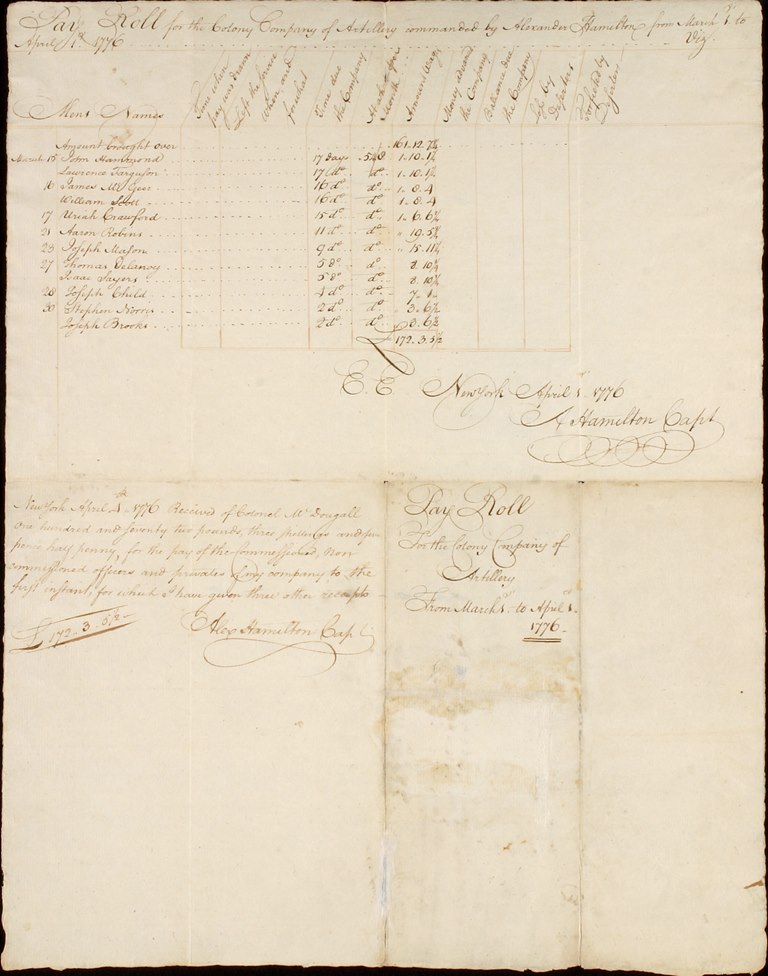 Pay Roll for the Colony Company of Artillery commanded by Alexander Hamilton from March 1st to
April 1st 1776 Viz
Mens Names
Time when pay was drawn
Left the
when and
Time due the Company
Rate per Month
Amount Wages
Money advanced the Company
Ballance due the Company
by Deserters
by Deserters
Amount brought over 161.12.7½
March 15 John Hammond 17 days .548 1.10.1½
Lawrence Farguson 17 do do 1.10.1½
16 James McGeer 16 do do 1.8.4
William Scott 16 do do 1.8.4
17 Uriah Crawford 15 do do 1.6.6½
21 Aaron Robins 11 do do " 19.5½
23 Joseph Mason 9 do do " 15.11½
27 Thomas Delanoy 5 do do 8.10½
Isaac Sayers 5 do do 8.10½
28 Joseph Child 4 do do 7.1
30 Stephen Norris 2 do do " 3.6½
Joseph Brooks 2 do do " 3.6½
£ 172.3.5½
E. E. New York April 1st 1776
A Hamilton Capt
New York April 4th 1776 Received of Colonel McDougall
one hundred and seventy two pounds, three shillings and five
pence half penny, for the pay of the Commissioned, Non
commissioned officers and privates of my company to the
first instant, for which I have given three other receipts
£ 172..3..5½
Alex Hamilton Capt
Pay Roll
For the Colony Company of
Artillery
From March 1st to April 1st
1776